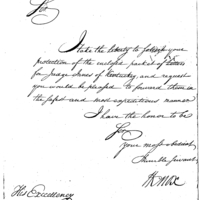 Sir
I take the liberty to solicit your
protection of the inclosed packet of Letters
for Judge Innes of Kentucky, and request
you would be pleased to forward them in
the safest and most expeditious manner
I have the honor to be
Sir,
Your most obedient
Humble Servant
HKnox
His Excellency